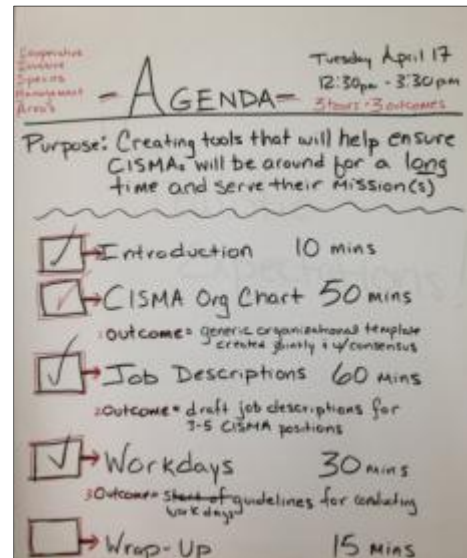 Cooperative
Invasive
Species
Management
Area's
- AGENDA -
Tuesday April 17
12:30pm - 3:30pm
3 hours - 3 outcomes
Purpose: Creating tools that will help ensure
CISMAs will be around for a long
time and serve their Mission(s)
Introduction 10 mins
CISMA Org Chart 50 mins
1 Outcome = generic organizational template
created jointly & w/consensus
Job Descriptions 60 mins
2 Outcome = draft job descriptions for
3-5 CISMA positions
Workdays 30 mins
3 Outcome = start of guidelines for conducting
work days
Wrap-Up 15 mins